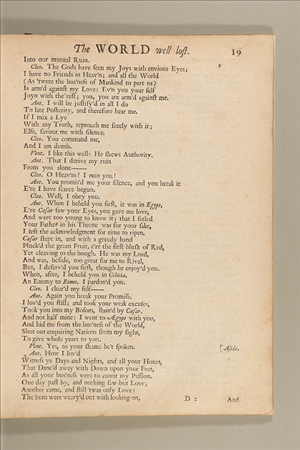 The WORLD well lost. 19
Into our mutual Ruin.
Cleo. The Gods have seen my Joys with envious Eyes;
I have no Friends in Heav'n; and all the World
(As 'twere the bus'ness of Mankind to part us)
Is arm'd against my Love: Ev'n you your self
Joyn with the rest; you, you are arm'd against me.
Ant. I will be justify'd in all I do
To late Posterity, and therefore hear me.
If I mix a Lye
With any Truth, reproach me freely with it;
Else, favour me with silence.
Cleo. You command me,
And I am dumb.
Vent. I like this well: He shews Authority.
Ant. That I derive my ruin
From you alone------
Cleo. O Heav'ns! I ruin you!
Ant. You promis'd me your silence, and you break it
E're I have scarce begun.
Cleo. Well, I obey you.
Ant. When I beheld you first, it was in Egypt,
E're Cæsar saw your Eyes, you gave me love,
And were too young to know it; that I setled
Your Father in his Throne was for your sake,
I left the acknowledgment for time to ripen.
Cæsar stept in, and with a greedy hand
Pluck'd the green Fruit, e're the first blush of Red,
Yet cleaving to the bough. He was my Lord,
And was, beside, too great for me to Rival,
But, I deserv'd you first, though he enjoy'd you.
When, after, I beheld you in Cilicia,
An Enemy to Rome, I pardon'd you.
Cleo. I clear'd my self-----
Ant. Again you break your Promise.
I lov'd you still; and took your weak excuses,
Took you into my Bosom, stain'd by Cæsar,
And not half mine: I went to Ægypt with you,
And hid me from the bus'ness of the World,
Shut out enquiring Nations from my sight,
To give whole years to you.
Vent. Yes, to your shame be't spoken. [Aside.
Ant. How I lov'd
Witness ye Days and Nights, and all your Hours,
That Danc'd away with Down upon your Feet,
As all your bus'ness were to count my Passion.
One day past by, and nothing saw but Love;
Another came, and still 'twas only Love:
The Suns were weary'd out with looking on,
D 2 And